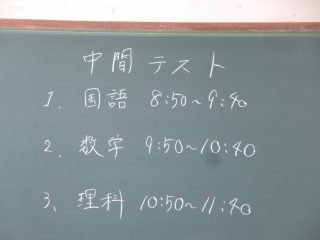 中間テスト
1、国語 8:50～9:40
2、数学 9:50～10:40
3、理科 10:50～11:40